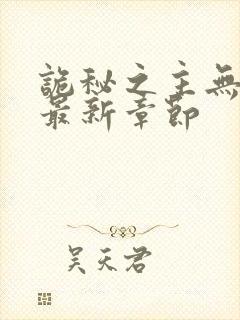 詭秘之主無
最新章節
吴天君